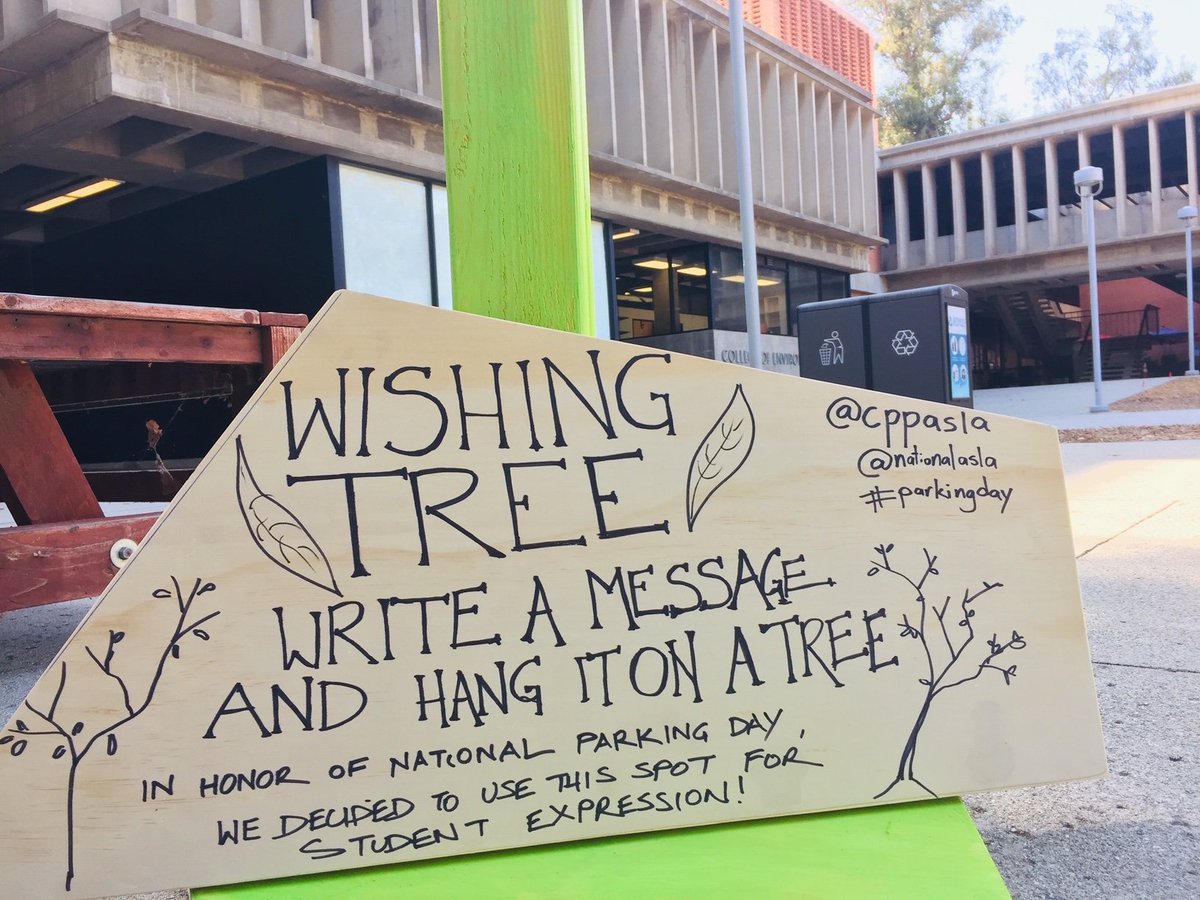 WISHING
TREE
WRITE A MESSAGE
AND HANG IT ON A TREE
IN HONOR OF NATIONAL PARKING DAY,
WE DECIDED TO USE THIS SPOT FOR
STUDENT EXPRESSION!
@cppasla
@nationalasla
#parkingday
COLLEGE OF ENVIRO